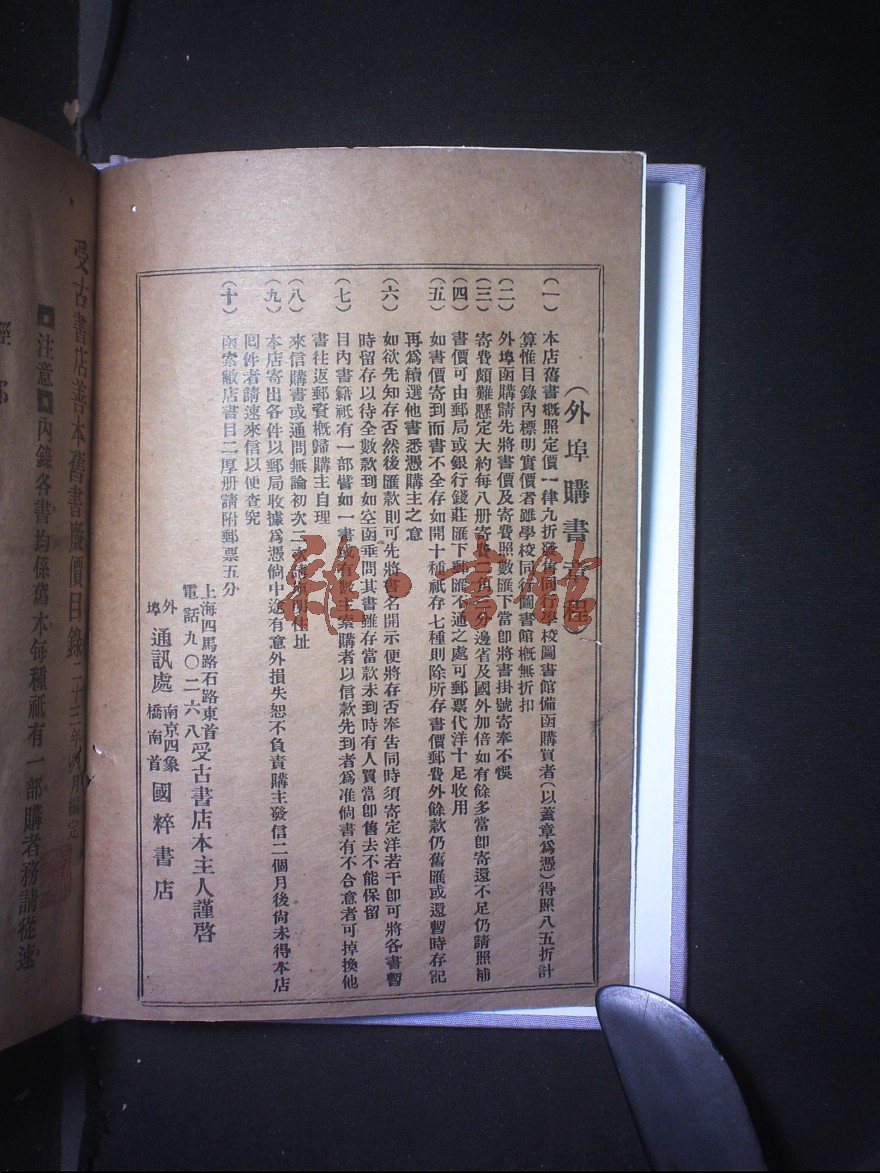 （外埠購書章程）
（一）本店舊書概照定價一律九折發售同行學校圖書館備函購買者（以蓋章爲憑）得照八五折計
算惟目錄內標明實價者雖學校同行圖書館概無折扣
（二）外埠函購請先將書價及寄費照數匯下當卽將書掛號寄奉不悞
（三）寄費頗難懸定大約每八册寄費二角三分邊省及國外加倍如有餘多當卽寄還不足仍請照補
（四）書價可由郵局或銀行錢莊匯下郵匯不通之處可郵票代洋十足收用
（五）如書價寄到而書不全存如開十種祇存七種則除所存書價郵費外餘款仍舊匯或還暫時存記
再爲續選他書悉憑購主之意
（六）如欲先知存否然後匯款則可先將書名開示便將存否奉告同時須寄定洋若干卽可將各書暫
時留存以待全數款到如空函垂問其書雖存當款未到時有人買當卽售去不能保留
（七）目內書籍祇有一部譬如一書或有數主索購者以信款先到者爲准倘書有不合意者可掉換他
書往返郵資概歸購主自理
（八）來信購書或通問無論初次二次請填明住址
（九）本店寄出各件以郵局收據爲憑倘中途有意外損失恕不負責購主發信二個月後尙未得本店
囘件者請速來信以便查究
（十）函索敝店書目二厚册請附郵票五分
上海四馬路石路東首受古書店本主人謹啓
電話九〇二六八
外埠通訊處 南京四象橋南首 國粹書店
受古書店善本舊書廉價目錄 二十三年 月編定
注意 內錄各書均係舊本每種祗有一部購者務請從速
經部
雜·書館